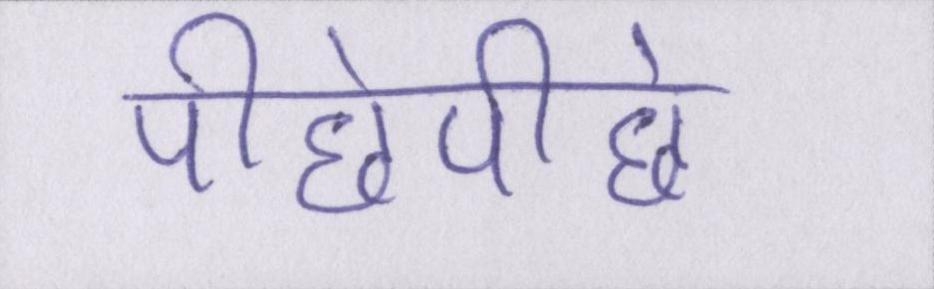 पीछेपीछे